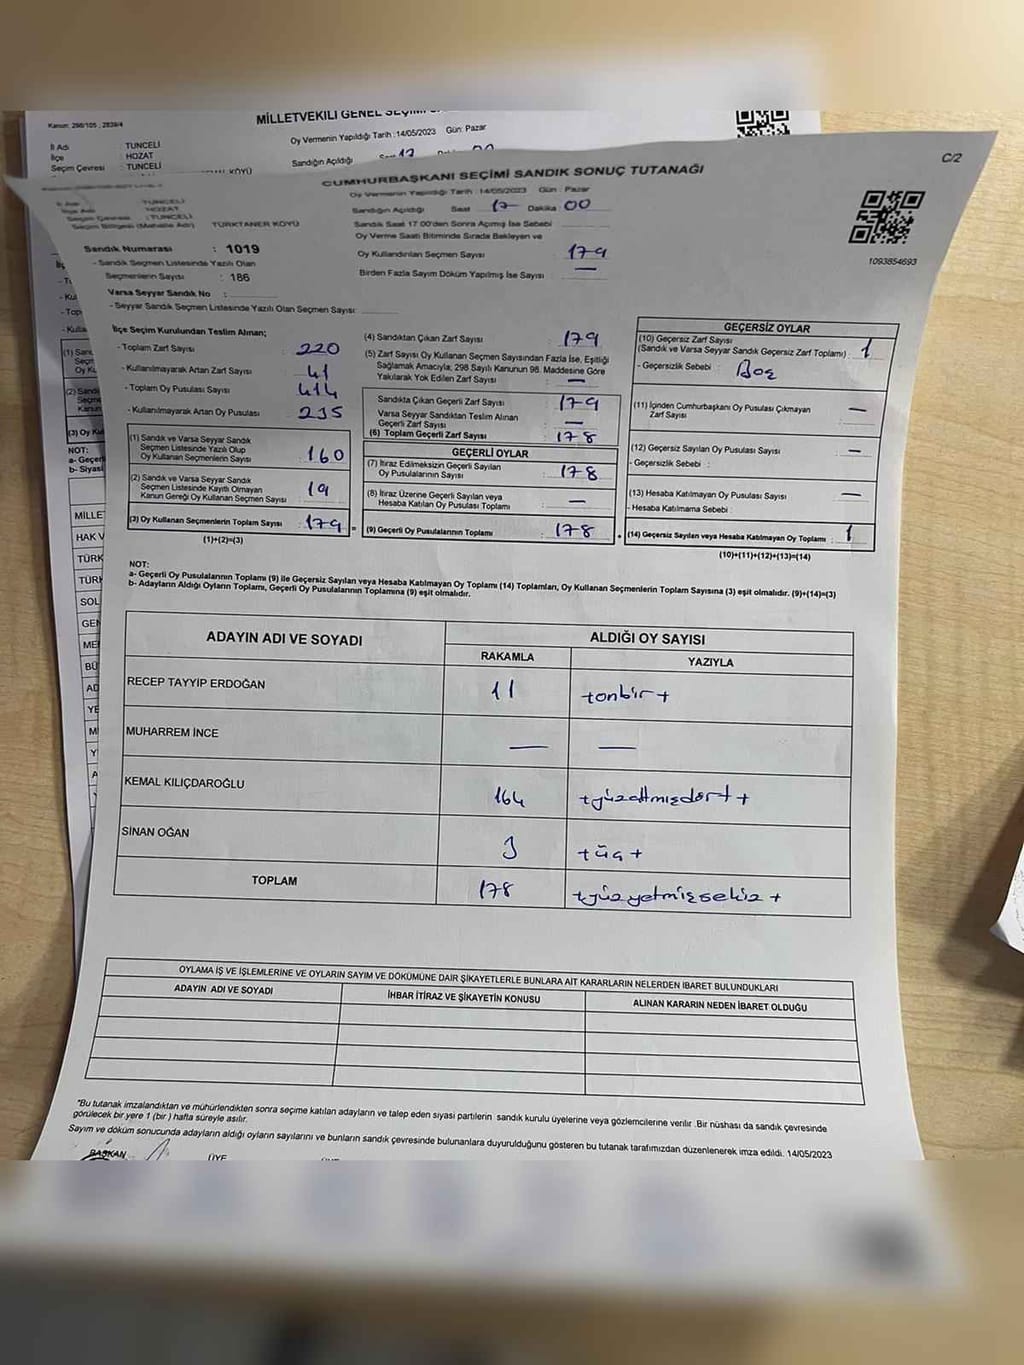 Kanun: 298/105 , 2839/4
MİLLETVEKİLİ GENEL
Oy Vermenin Yapıldığı Tarih :14/05/2023 Gün: Pazar
İl Adı TUNCELİ
İlçe HOZAT
Seçim Çevresi : TUNCELİ
Sandığın Açıldığı
C/2
CUMHURBAŞKANI SEÇİMİ SANDIK SONUÇ TUTANAĞI
Oy Vermenin Yapıldığı Tarih :14/05/2023 Gün : Pazar
İl Adı : TUNCELİ
İlçe Adı : HOZAT
Seçim Çevresi : TUNCELİ
Seçim Bölgesi (Mahalle Adı) : TÜRKTANER KÖYÜ
Sandığın Açıldığı Saat 17 Dakika 00
Sandık Saat 17.00'den Sonra Açılmış İse Sebebi
Oy Verme Saati Bitiminde Sırada Bekleyen ve
Oy Kullandırılan Seçmen Sayısı 179
Birden Fazla Sayım Döküm Yapılmış İse Sayısı —
1093854693
Sandık Numarası : 1019
- Sandık Seçmen Listesinde Yazılı Olan
Seçmenlerin Sayısı : 186
Varsa Seyyar Sandık No :
- Seyyar Sandık Seçmen Listesinde Yazılı Olan Seçmen Sayısı:
İlçe Seçim Kurulundan Teslim Alınan;
- Toplam Zarf Sayısı : 220
- Kullanılmayarak Artan Zarf Sayısı : 41
- Toplam Oy Pusulası Sayısı : 414
- Kullanılmayarak Artan Oy Pusulası : 235
(1) Sandık ve Varsa Seyyar Sandık
Seçmen Listesinde Yazılı Olup
Oy Kullanan Seçmenlerin Sayısı : 160
(2) Sandık ve Varsa Seyyar Sandık
Seçmen Listesinde Kayıtlı Olmayan
Kanun Gereği Oy Kullanan Seçmen Sayısı : 19
(3) Oy Kullanan Seçmenlerin Toplam Sayısı : 179 =
(1)+(2)=(3)
(4) Sandıktan Çıkan Zarf Sayısı : 179
(5) Zarf Sayısı Oy Kullanan Seçmen Sayısından Fazla İse, Eşitliği
Sağlamak Amacıyla; 298 Sayılı Kanunun 98. Maddesine Göre
Yakılarak Yok Edilen Zarf Sayısı : —
Sandıkta Çıkan Geçerli Zarf Sayısı : 179
Varsa Seyyar Sandıktan Teslim Alınan
Geçerli Zarf Sayısı : —
(6) Toplam Geçerli Zarf Sayısı : 178
GEÇERLİ OYLAR
(7) İtiraz Edilmeksizin Geçerli Sayılan
Oy Pusulalarının Sayısı : 178
(8) İtiraz Üzerine Geçerli Sayılan veya
Hesaba Katılan Oy Pusulası Toplamı : —
(9) Geçerli Oy Pusulalarının Toplamı : 178 +
GEÇERSİZ OYLAR
(10) Geçersiz Zarf Sayısı
(Sandık ve Varsa Seyyar Sandık Geçersiz Zarf Toplamı) : 1
- Geçersizlik Sebebi : Boş
(11) İçinden Cumhurbaşkanı Oy Pusulası Çıkmayan
Zarf Sayısı : —
(12) Geçersiz Sayılan Oy Pusulası Sayısı : —
- Geçersizlik Sebebi :
(13) Hesaba Katılmayan Oy Pusulası Sayısı : —
- Hesaba Katılmama Sebebi :
(14) Geçersiz Sayılan veya Hesaba Katılmayan Oy Toplamı : 1
(10)+(11)+(12)+(13)=(14)
NOT:
a- Geçerli Oy Pusulalarının Toplamı (9) ile Geçersiz Sayılan veya Hesaba Katılmayan Oy Toplamı (14) Toplamları, Oy Kullanan Seçmenlerin Toplam Sayısına (3) eşit olmalıdır. (9)+(14)=(3)
b- Adayların Aldığı Oyların Toplamı, Geçerli Oy Pusulalarının Toplamına (9) eşit olmalıdır.
ADAYIN ADI VE SOYADI ALDIĞI OY SAYISI
RAKAMLA YAZIYLA
RECEP TAYYİP ERDOĞAN 11 +onbir+
MUHARREM İNCE — —
KEMAL KILIÇDAROĞLU 164 +yüzaltmışdört+
SİNAN OĞAN 3 +üç+
TOPLAM 178 +yüzyetmişsekiz+
OYLAMA İŞ VE İŞLEMLERİNE VE OYLARIN SAYIM VE DÖKÜMÜNE DAİR ŞİKAYETLERLE BUNLARA AİT KARARLARIN NELERDEN İBARET BULUNDUKLARI
ADAYIN ADI VE SOYADI İHBAR İTİRAZ VE ŞİKAYETİN KONUSU ALINAN KARARIN NEDEN İBARET OLDUĞU
"Bu tutanak imzalandıktan ve mühürlendikten sonra seçime katılan adayların ve talep eden siyasi partilerin sandık kurulu üyelerine veya gözlemcilerine verilir .Bir nüshası da sandık çevresinde
görülecek bir yere 1 (bir ) hafta süreyle asılır.
Sayım ve döküm sonucunda adayların aldığı oyların sayılarını ve bunların sandık çevresinde bulunanlara duyurulduğunu gösteren bu tutanak tarafımızdan düzenlenerek imza edildi. 14/05/2023
BAŞKAN ÜYE